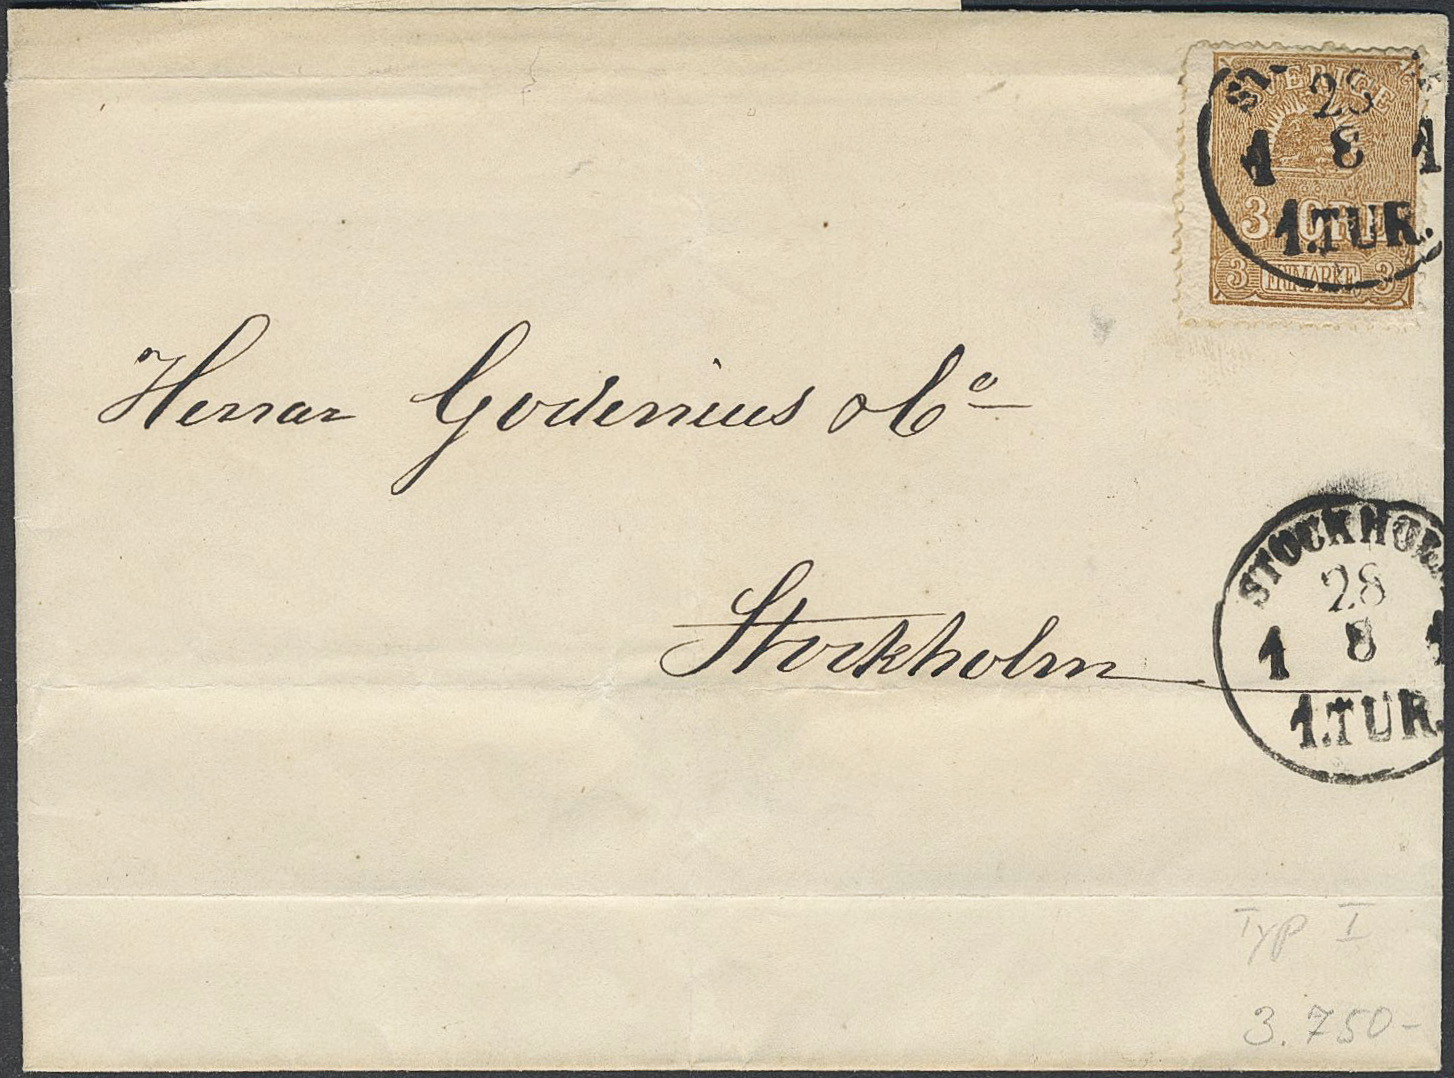 SVERIGE
3 ÖRE
3 FRIMÄRKE 3
28
1 8 1
1.TUR.
Herrar Godenius & Co
Stockholm
STOCKHOL
28
1 8 1
1.TUR.
Typ I
3.750-